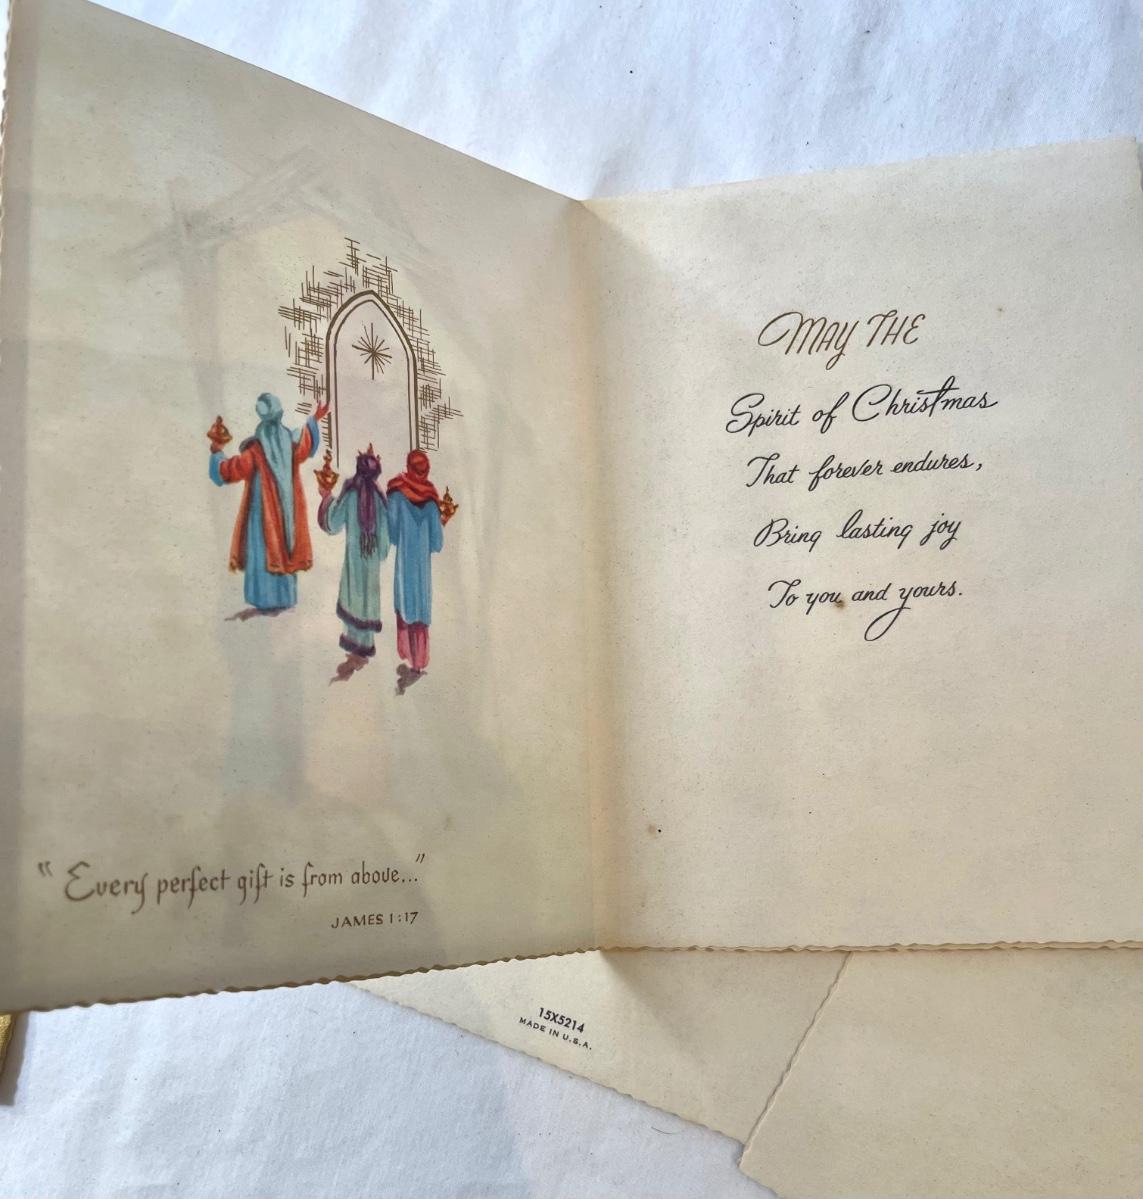 "Every perfect gift is from above..."
JAMES 1:17
MAY THE
Spirit of Christmas
That forever endures,
Bring lasting joy
To you and yours.
15X5214
MADE IN U.S.A.